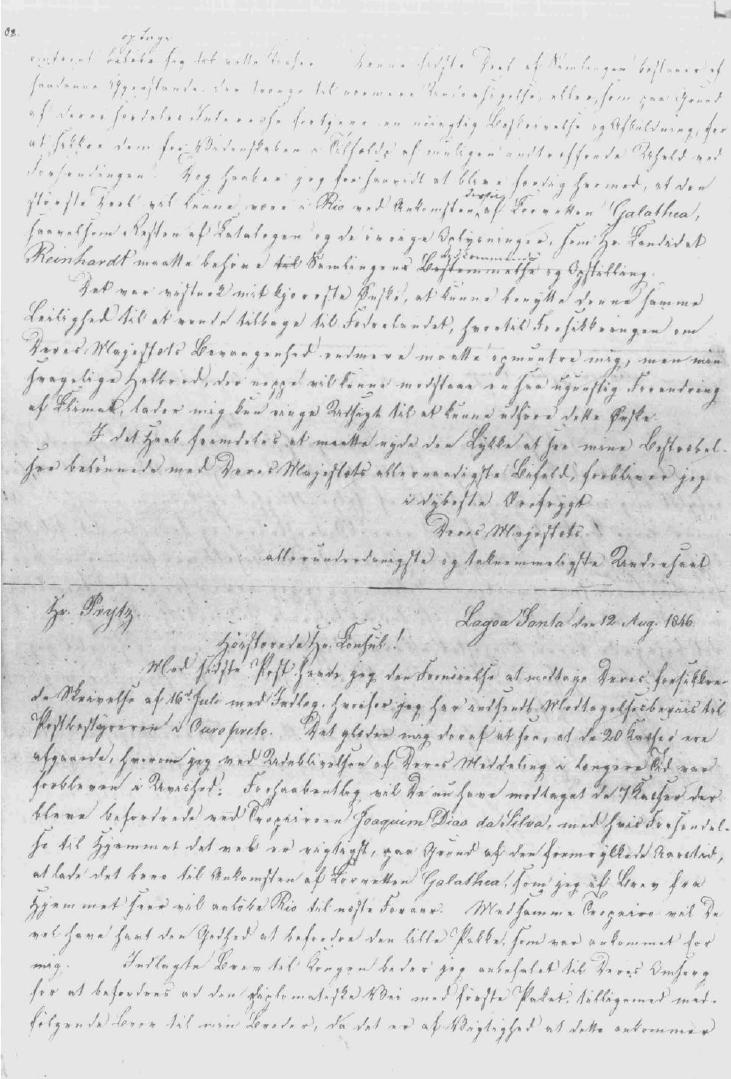 optage
omtrent beløbe sig til otte Kasser. Denne sidste Deel af Samlingen bestaaer af
saadanne Gjenstande, der trænge til nærmere Undersøgelse, eller, som paa Grund
af deres særdeles Interesse fortjene en nøiagtig Beskrivelse og Afbildning, for
at sikkre dem for Videnskaben i Tilfælde af muligen indtræffende Uheld ved
Forsendingen. Dog haaber jeg forsaavidt at blive færdig hermed, at den
største Deel vil kunne være i Rio ved Ankomsten af Corvetten Galathea,
saavelsom Resten af Catalogen og de øvrige Oplysninger, som Hr. Candidat
Reinhardt maatte behøve til Samlingens Bestemmelse og Opstilling.
Det var vistnok mit kjæreste Ønske, at kunne benytte denne samme
Leilighed til at vende tilbage til Fædrelandet, hvortil Forsikkringen om
Deres Majestæts Bevaagenhed endmere maatte opmuntre mig, men min
svagelige Helbred, der neppe vil kunne modstaae en saa ugunstig Forandring
af Klimat, lader mig kun ringe Udsigt til at kunne udføre dette Ønske.
I det Haab fremdeles at maatte nyde den Lykke at see mine Bestræbel-
ser belønnede med Deres Majestæts allernaadigste Bifald, forbliver jeg
i dybeste Ærefrygt
Deres Majestæts
allerunderdanigste og taknemmeligste Undersaat
Hr. Prytz.
Lagoa Santa den 12 Aug. 1846
Høistærede Hr. Consul!
Med sidste Post havde jeg den Fornøielse at modtage Deres forsikkre-
de Skrivelse af 16d Juli med Indlæg, hvorfor jeg har indsendt Modtagelsesbeviis til
Postbestyreren i Ouropreto. Det glæder mig deraf at see, at de 20 Kasser ere
afgaaede, hvorom jeg ved Udeblivelsen af Deres Meddeling i længere Tid var
forbleven i Uvished. Forhaabentlig vil De nu have modtaget de 7 Kasser der
bleve befordrede ved Tropeiroen Joaquim Dias da Silva, med hvis Forsendel-
se til Hjemmet det vel er rigtigst, paa Grund af den fremrykkede Aarstid,
at lade det bero til Ankomsten af Corvetten Galathea, som jeg af Brev fra
Hjemmet seer vil anløbe Rio til næste Foraar. Med samme Tropeiro vil De
vel have havt den Godhed at befordre den lille Pakke, som var ankommet for
mig. Indlagte Brev til Kongen beder jeg anbefalet til Deres Omsorg
for at befordres ad den diplomatiske Vei med første Paket, tilligemed med-
følgende Brev til min Broder, da det er af Vigtighed at dette ankommer